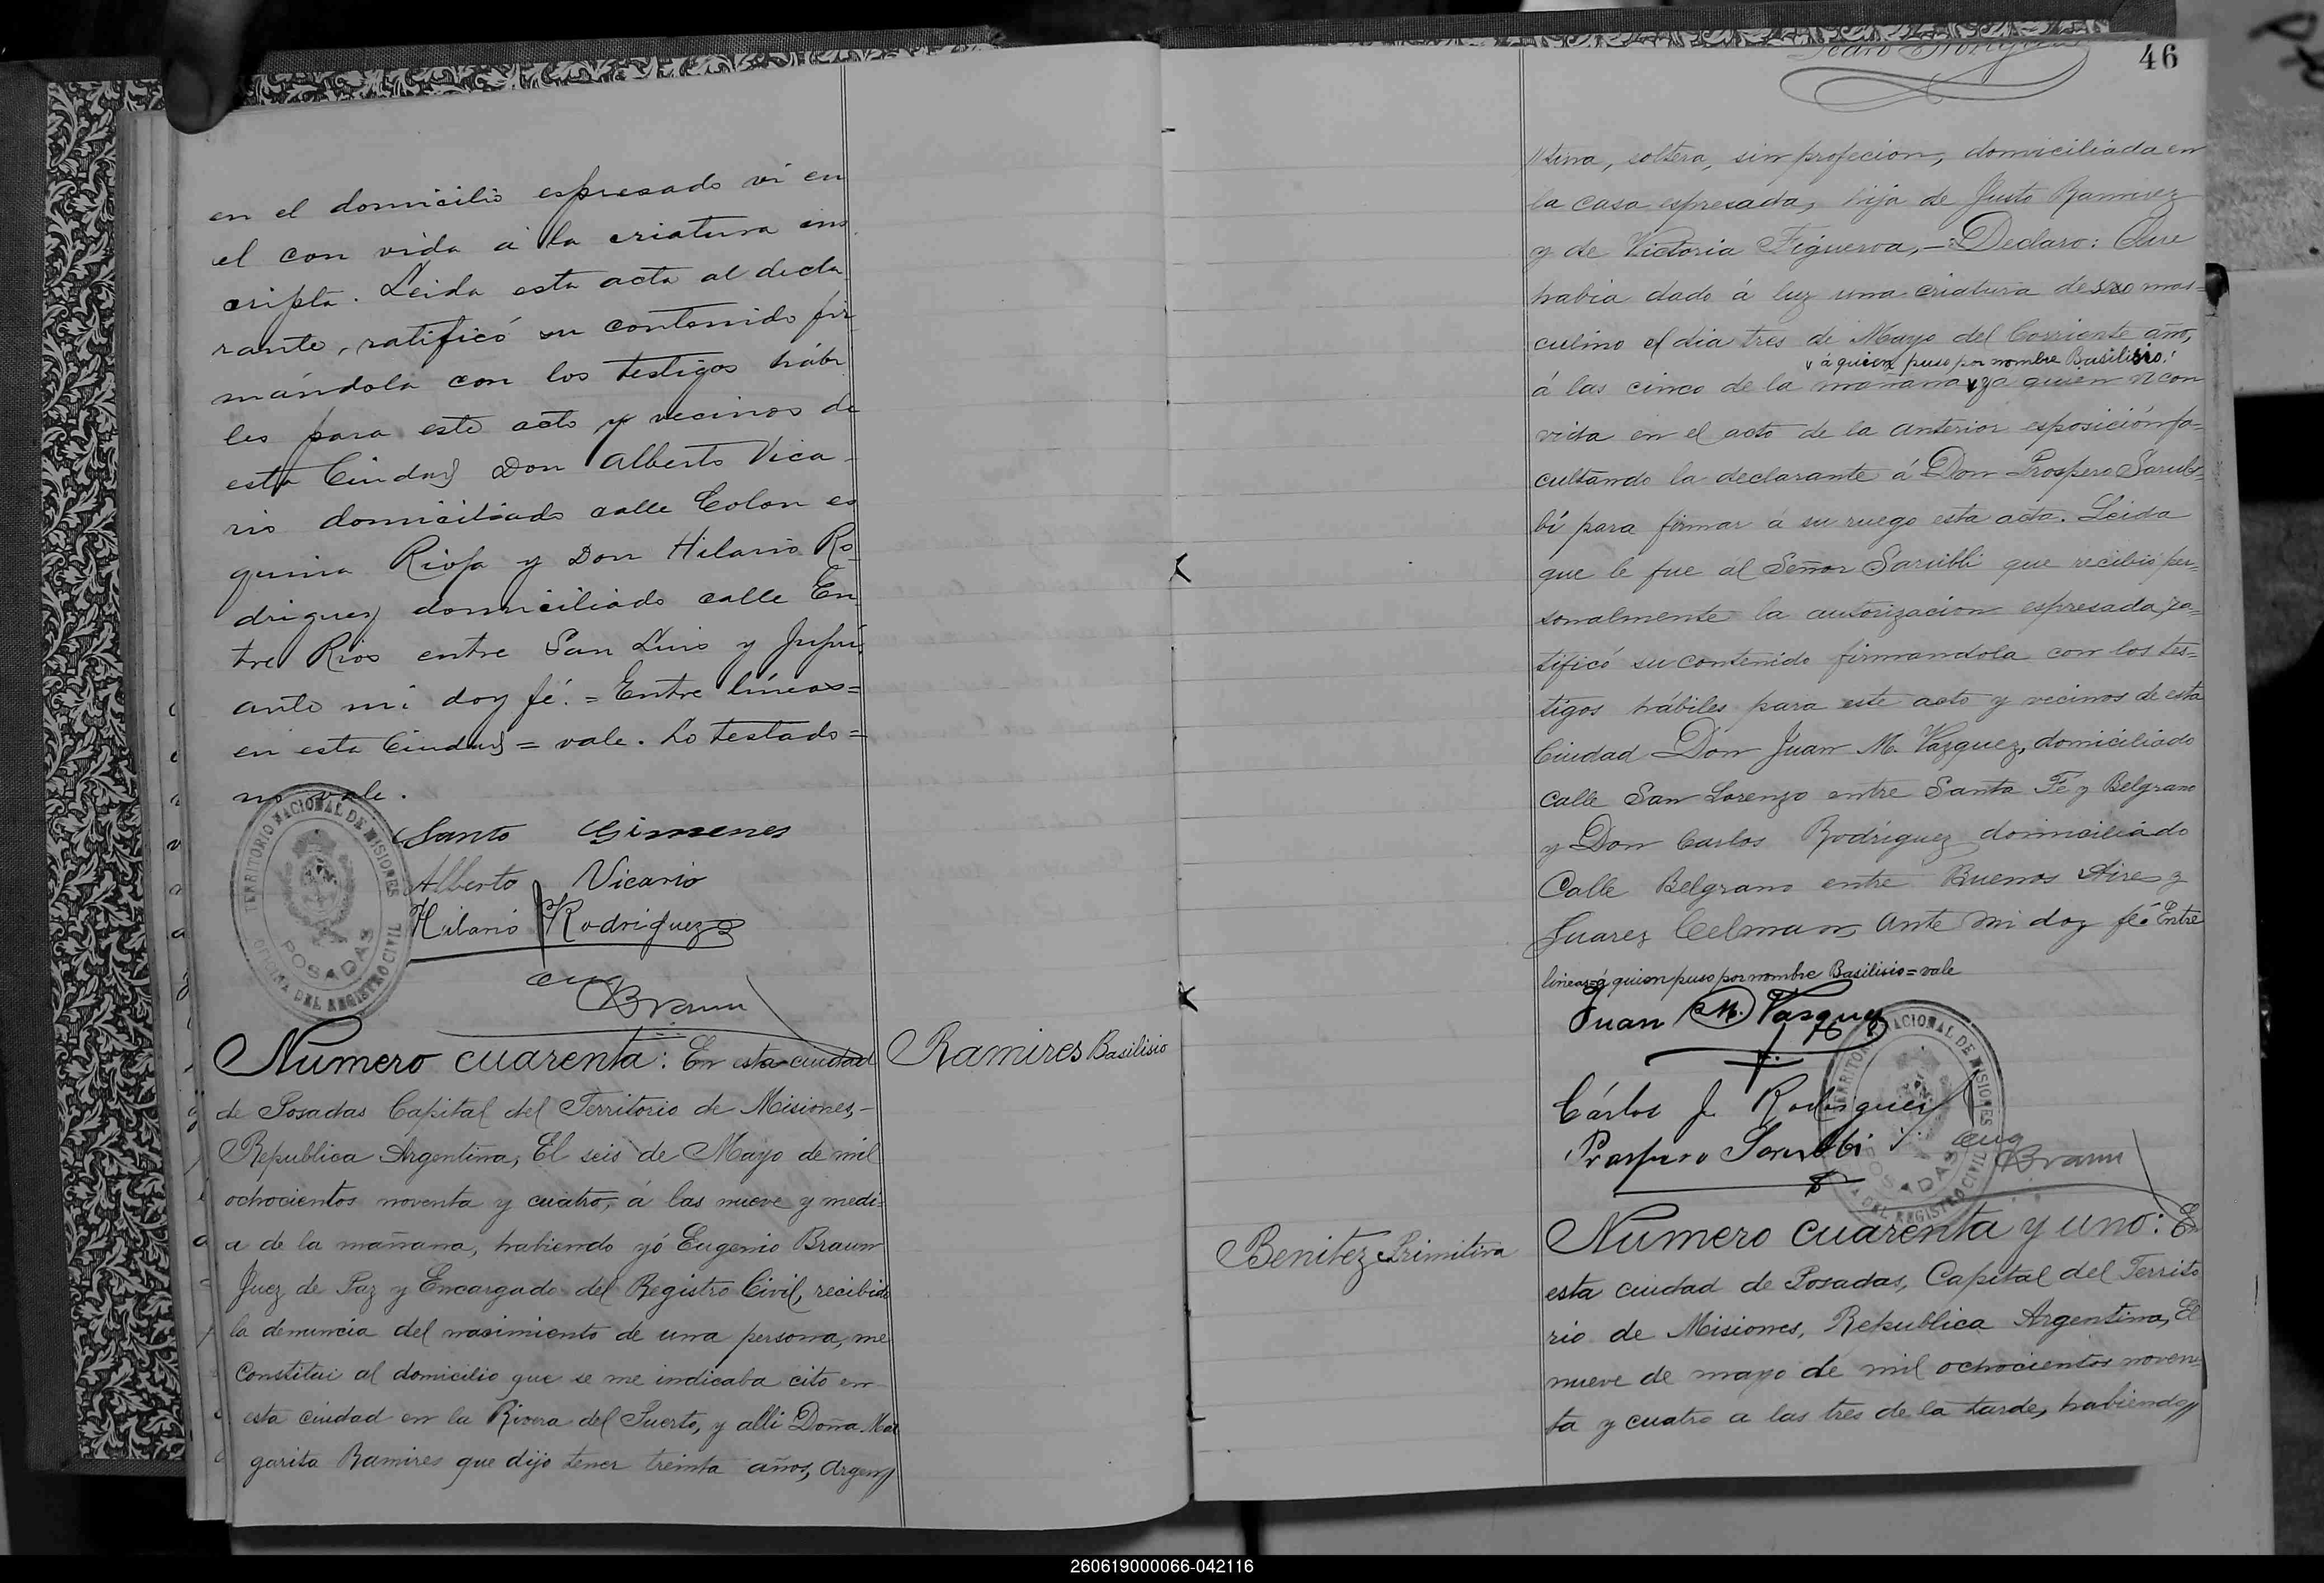 en el domicilio espresado vi en
el con vida á la criatura ins
cripta. Leida esta acta al decla
rante, ratificó su contenido fir
mándola con los testigos hábi
les para este acto y vecinos de
esta Ciudad Don Alberto Vica-
rio domiciliado calle Colon es
quina Rioja y Don Hilario Ro-
driguez domiciliado calle En
tre Rios entre San Luis y Jujui,
ante mi doy fé. = Entre líneas=
en esta Ciudad = vale. Lo testado=
no vale.
Santo Gimenes
Alberto Vicario
Hilario Rodriguez
Eug Braun
TERRITORIO NACIONAL DE MISIONES
POSADAS
OFICINA DEL REGISTRO CIVIL
Numero cuarenta: En esta ciudad
Ramires Basilisio
de Posadas Capital del Territorio de Misiones,-
Republica Argentina, El seis de Mayo de mil
ochocientos noventa y cuatro, á las nueve y medi=
a de la mañana, habiendo yó Eugenio Braun
Juez de Paz y Encargado del Registro Civil, recibido
la denuncia del nasimiento de una persona, me
Constitui al domicilio que se me indicaba cito en
esta ciudad en la Rivera del Puerto, y alli Doña Mar
garita Ramires que dijo tener treinta años, Argen//
46
//tina, soltera, sin profecion, domiciliada en
la casa espresada, hija de Justo Ramirez
y de Victoria Figueroa,- Declaro: Que
habia dado á luz una criatura de sexo mas=
culino el dia tres de Mayo del Corriente año,
á quien puso por nombre Basilisio.
á las cinco de la manana y a quien vi con
vida en el acto de la anterior esposición fa=
cultando la declarante á Don Prospero Sarub=
bi para firmar á su ruego esta acta. Leida
que le fue al Señor Sarubbi que recibió per=
sonalmente la autorizacion espresada, ra=
tificó su contenido firmandola con los tes=
tigos hábiles para este acto y vecinos de esta
Ciudad Don Juan M. Vazquez, domiciliado
Calle San Lorenzo entre Santa Fé y Belgrano
y Don Carlos Rodriguez domiciliado
Calle Belgrano entre Buenos Aires y
Juarez Celman, ante mi doy fé. Entre
lineas=á quien puso por nombre Basilisio=vale
Juan M. Vasquez
Cárlos J. Rodriguez
Prospero Sarubbi
Eug Braun
TERRITORIO NACIONAL DE MISIONES
POSADAS
OFICINA DEL REGISTRO CIVIL
Benitez Primitiva
Numero cuarenta y uno: En
esta ciudad de Posadas, Capital del Territo
rio de Misiones, Republica Argentina, El
nueve de mayo de mil ochocientos noven=
ta y cuatro a las tres de la tarde, habiendo//
260619000066-042116